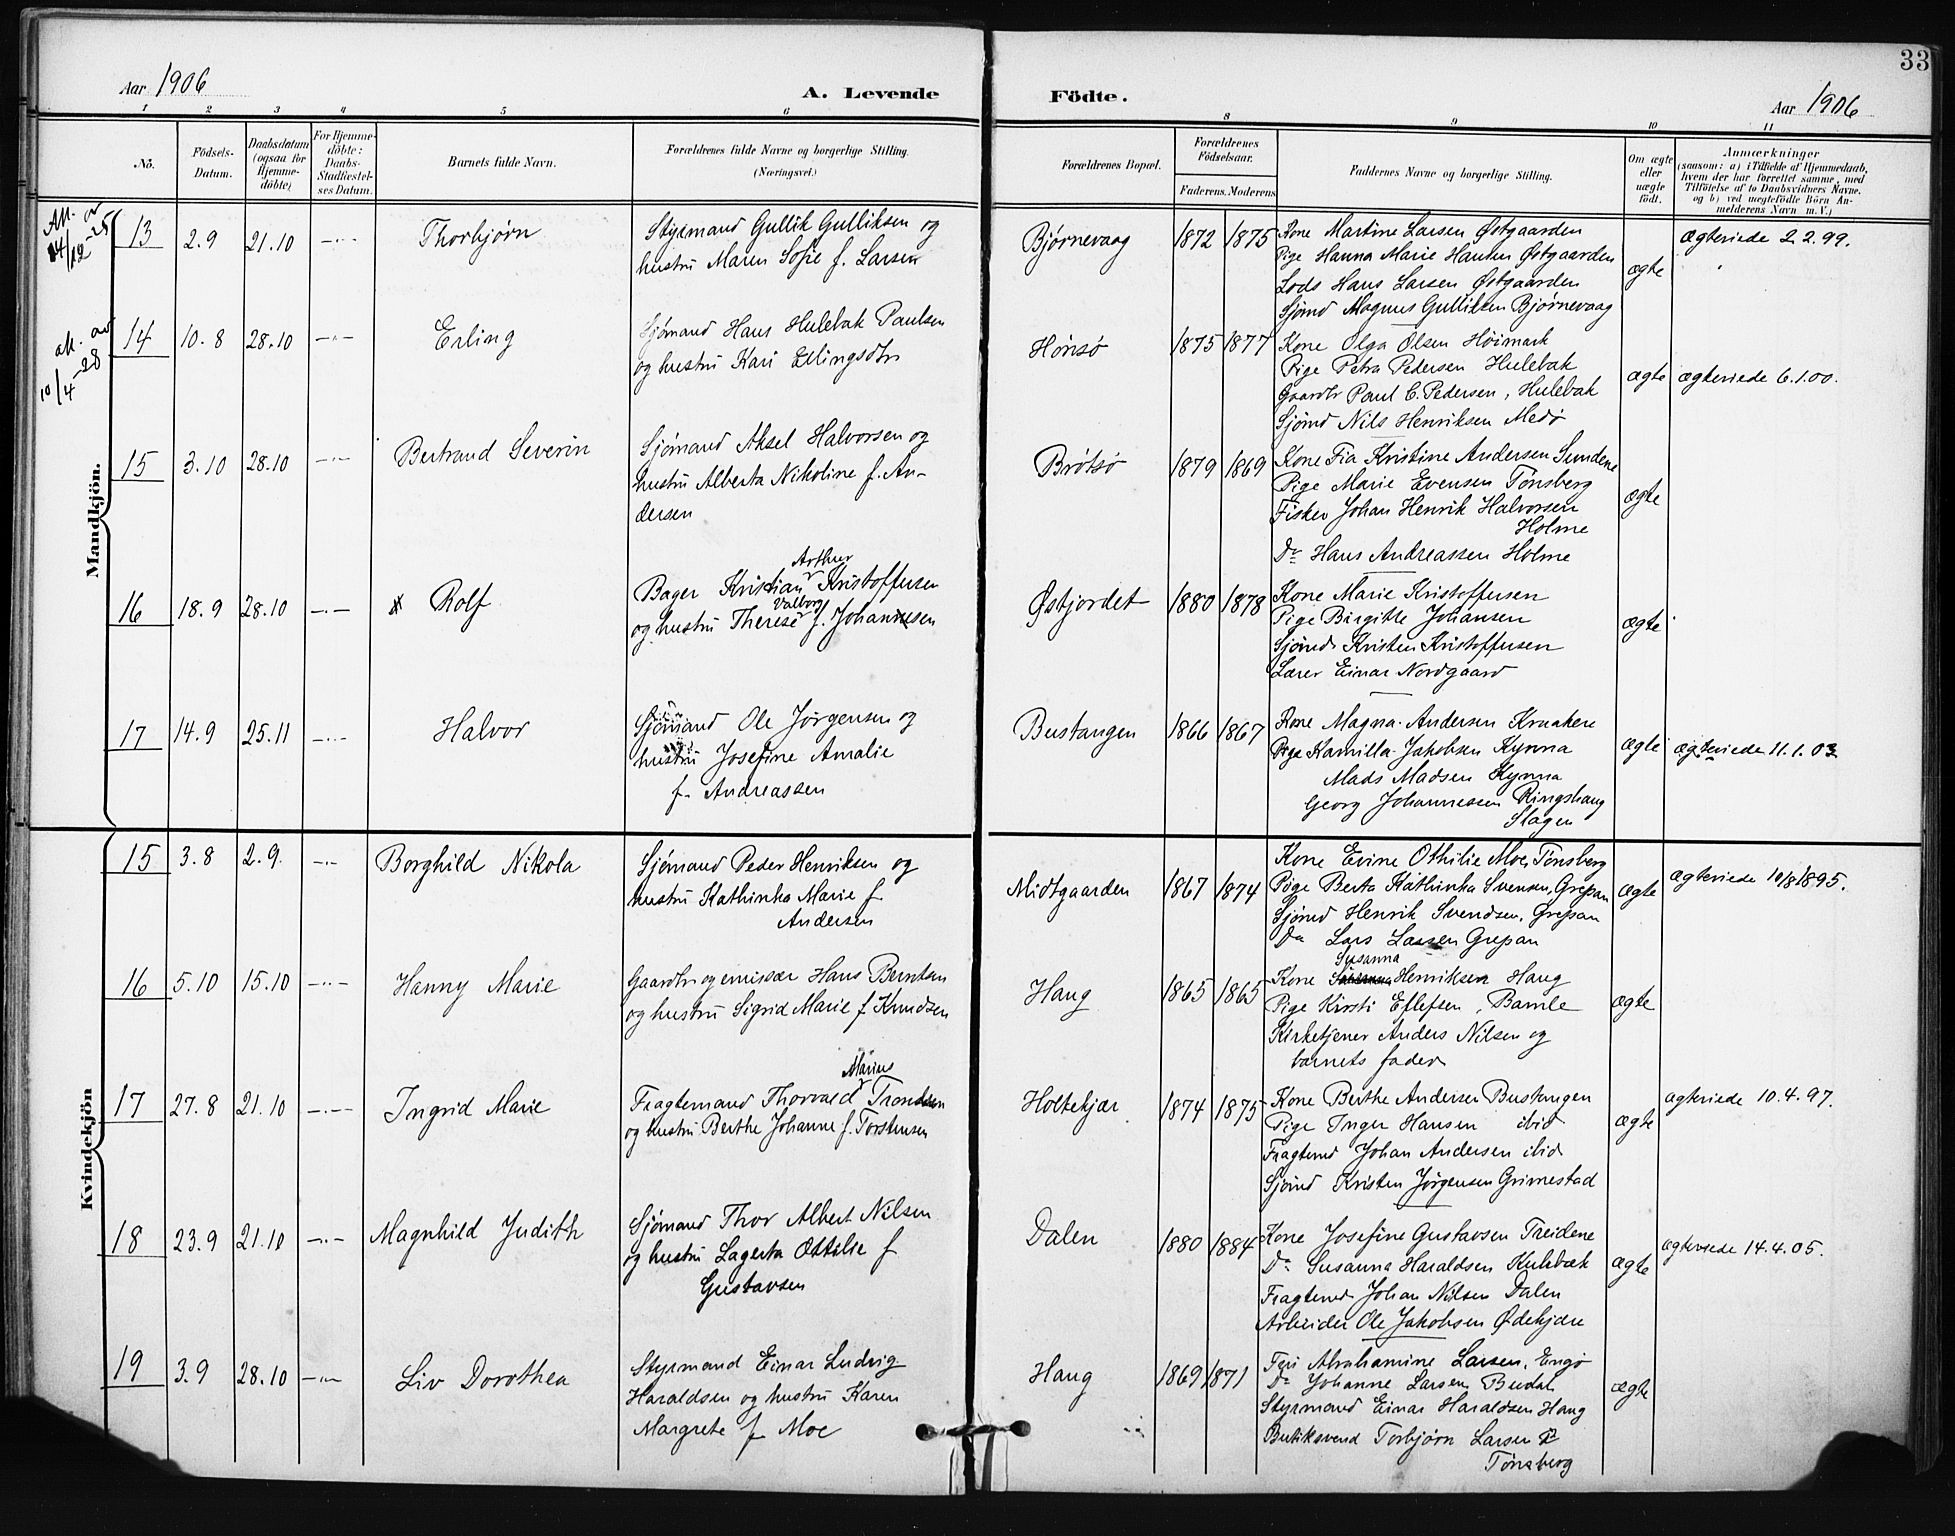 33
Aar 1906
A. Levende
Födte.
Aar 1906
1 2 3 4 5 6 8 9 10 11
No.
Födsels-
Datum.
Daabsdatum
(ogsaa for
Hjemme-
döbte)
For Hjemme-
döbte:
Daabs-
Stadfæstel-
ses Datum.
Barnets fulde Navn.
Forældrenes fulde Navne og borgerlige Stilling.
(Næringsvei.)
Forældrenes Bopæl.
Forældrenes
Födselsaar.
Faderens. Moderens
Faddernes Navne og borgerlige Stilling.
Om ægte
eller
uægte
født.
Anmærkninger
(saasom: a) i Tilfælde af Hjemmedaab,
hvem der har forrettet samme, med
Tilföielse af to Daabsvidners Navne.
og b) ved uægtefödte Börn An-
melderens Navn m. V.)
Mandkjön.
Att. av
14/12-25
13 2.9 21.10 -"-
Thorbjørn
Styrmand Gullik Gulliksen og
hustru Maren Sofie f. Larsen
Bjørnevaag 1872 1875
Kone Martine Larsen Østgaarden
Pige Hanna Marie Hansen Østgaarden
Lods Hans Larsen Østgaarden
Sjømd Magnus Gulliksen Bjørnevaag
ægte
Ægteviede 2.2.99.
att. av
10/4-28
14 10.8 28.10 -"-
Erling
Sjømand Hans Hulebak Paulsen
og hustru Kari Erlingsdtr
Hønsø 1875 1877
Kone Olga Olsen Høimark
Pige Petra Pedersen Hulebak
Gaardbr Paul C. Pedersen, Hulebak
Sjømd Nils Henriksen Medø
ægte
ægteviede 6.1.00.
15 3.10 28.10 -"-
Bertrand Severin
Sjømand Aksel Halvorsen og
hustru Alberta Nikoline f. An-
dersen
Brøtsø 1879 1869
Kone Fia Kristine Andersen Sundene
Pige Marie Evensen Tønsberg
Fisker Johan Henrik Halvorsen
Holme
Do Hans Andreassen Holme
ægte
16 18.9 28.10 -"-
Rolf
Arthur
Bager Kristian Kristoffersen
Valborg
og hustru Therese f. Johannesen
Østjordet 1880 1878
Kone Marie Kristoffersen
Pige Birgitte Johansen
Sjømd Kristen Kristoffersen
Lærer Einar Nordgaard
ægte
17 14.9 25.11 -"-
Halvor
Sjømand Ole Jørgensen og
hustru Josefine Amalie
f. Andreassen
Bustangen 1866 1867
Kone Magna Andersen Kraakere
Pige Kamilla Jakobsen Kynna
Mads Madsen Kynna
Georg Johannessen Ringshaug
Slagen
ægte
ægteviede 11.1.03
Kvindekjön
15 3.8 2.9. -"-
Borghild Nikola
Sjømand Peder Henriksen og
hustru Kathinka Marie f
Andersen
Midtgaarden 1867 1874
Kone Evine Othilie Moe, Tønsberg
Pige Berta Kathinka Svensen, Grepan
Sjømd Henrik Svendsen, Grepan
Do Lars Larsen Grepan
ægte
ægteviede 10/8 1895.
16 5.10 15.10 -"-
Hanny Marie
Gaardbr og emissær Hans Berntsen
og hustru Sigrid Marie f Knudsen
Haug 1865 1865
Susanna
Kone Henriksen Haug
Pige Kirsti Eflefsen, Bamle
Kirketjener Anders Nilsen og
barnets fader
ægte
17 27.8 21.10 -"-
Ingrid Marie
Marius
Fragtemand Thorvald Trondsen
og hustru Berthe Johanne f. Torstensen
Holtekjær 1874 1875
Kone Berthe Andersen Bustangen
Pige Inger Hansen ibid
Fragtemd Johan Andersen ibid
Sjømd Kristen Jørgensen Grimestad
ægte
ægteviede 10.4.97.
18 23.9 21.10 -"-
Magnhild Judith
Sjømand Thor Albert Nilsen
og hustru Lagerta Ottilie f
Gustavsen
Dalen 1880 1884
Kone Josefine Gustavsen Treidene
Do Susanna Haraldsen Hulebak
Fragtemd Johan Nilsen Dalen
Arbeider Ole Jakobsen Ødekjære
ægte
ægteviede 14.4.05.
19 3.9 28.10 -"-
Liv Dorothea
Styrmand Einar Ludvig
Haraldsen og hustru Karen
Margrete f Moe
Haug 1869 1871
Abrahamine Larsen, Engø
Do Johanne Larsen Budal
Styrmand Einar Haraldsen Haug
Butiksvend Torbjørn Larsen
Tønsberg
ægte